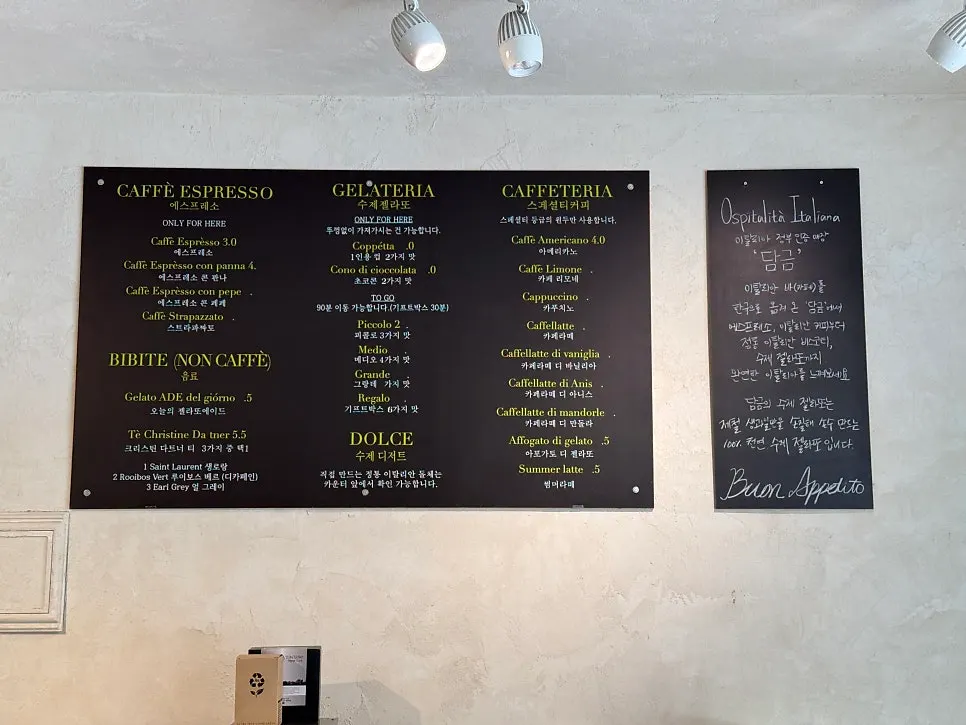 CAFFÈ ESPRESSO
에스프레소
ONLY FOR HERE
Caffè Esprèsso 3.0
에스프레소
Caffè Esprèsso con panna 4.
에스프레소 콘 판나
Caffè Esprèsso con pepe .
에스프레소 콘 페페
Caffè Strapazzato .
스트라파짜토
BIBITE (NON CAFFÈ)
음료
Gelato ADE del giórno .5
오늘의 젤라또에이드
Tè Christine Da tner 5.5
크리스틴 다트너 티 3가지 중 택1
1 Saint Laurent 생로랑
2 Rooibos Vert 루이보스 베르 (디카페인)
3 Earl Grey 얼 그레이
GELATERIA
수제젤라또
ONLY FOR HERE
뚜껑없이 가져가시는 건 가능합니다.
Coppétta .0
1인용 컵 2가지 맛
Cono di cioccolata .0
초코콘 2가지 맛
TO GO
90분 이동 가능합니다.(기프트박스 30분)
Piccolo 2 .
피콜로 3가지 맛
Medio
메디오 4가지 맛
Grande .
그랑데 가지 맛
Regalo .
기프트박스 6가지 맛
DOLCE
수제 디저트
직접 만드는 정통 이탈리안 돌체는
카운터 앞에서 확인 가능합니다.
CAFFETERIA
스페셜티커피
스페셜티 등급의 원두만 사용합니다.
Caffè Americano 4.0
아메리카노
Caffè Limone .
카페 리모네
Cappuccino .
카푸치노
Caffellatte .
카페라떼
Caffellatte di vaniglia .
카페라떼 디 바닐리아
Caffellatte di Anis .
카페라떼 디 아니스
Caffellatte di mandorle .
카페라떼 디 만돌라
Affogato di gelato .5
아포가토 디 젤라또
Summer latte .5
썸머라떼
Ospitalità Italiana
이탈리아 정부 인증 매장
'담금'
이탈리안 바(카페)를
한국으로 옮겨 온 '담금'에서
에스프레소, 이탈리안 커피부터
정통 이탈리안 비스코티,
수제 젤라또까지
완연한 이탈리아를 느껴보세요
담금의 수제 젤라또는
제철 생과일만을 손질해 손수 만드는
100% 천연 수제 젤라또 입니다.
Buon Appetito